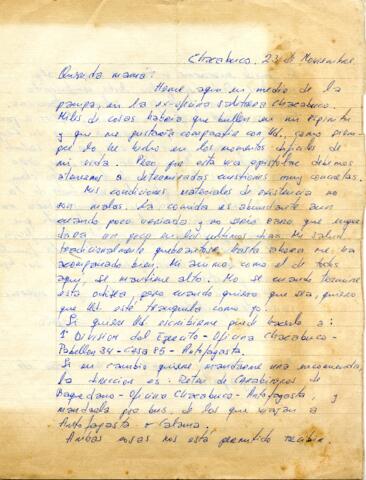 Chacabuco. 23 de Noviembre.
Querida mamá:
Heme aquí en medio de la
pampa, en la ex-oficina salitrera Chacabuco.
Miles de cosas habría que bullen en mi espíritu
y que me gustaría compartir con Ud. como siem-
pre lo he hecho en los momentos difíciles de
mi vida. Pero por esta vía epistolar debemos
atenernos a determinadas cuestiones muy concretas.
Mis condiciones materiales de existencia no
son malas. La comida es abundante aun
cuando poco variada y no sería raro que engor-
dara un poco en los últimos días. Mi salud
tradicionalmente quebradiza, hasta ahora me ha
acompañado bien. Mi ánimo, como el de todos
aquí, se mantiene alto. No sé cuando termine
esta odisea pero cuando quiera que sea, quiero
que Ud. esté tranquila como yo.
Si quiere Ud. escribirme puede hacerlo a:
1ª División del Ejército - Oficina Chacabuco -
Pabellón 34 - Casa 85 - Antofagasta.
Si en cambio quiere mandarme una encomienda,
la dirección es: Retén de Carabineros de
Baquedano - Oficina Chacabuco - Antofagasta, y
mandarla por bus, de los que viajan a
Antofagasta o Calama.
Ambas cosas nos está permitido recibir.